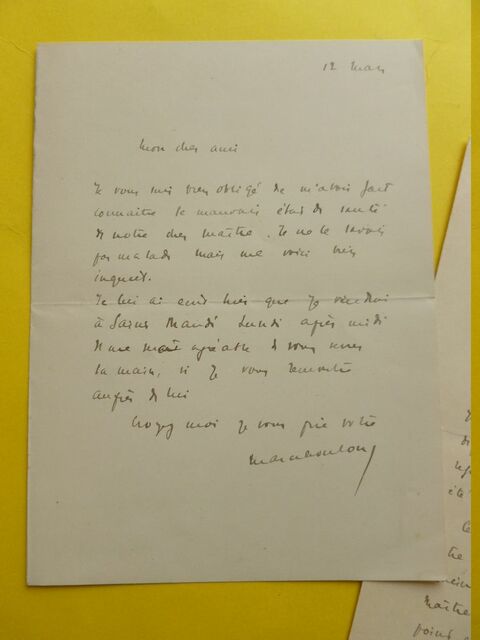 12 Mars
Mon cher ami
Je vous suis bien obligé de m'avoir fait
connaître le mauvais état de santé
de notre cher Maître. Je ne le savais
pas malade mais me voici très
inquiet.
Je lui ai écrit hier que je viendrai
à Saint Mandé Lundi après midi
Il me sera agréable de vous serrer
la main, si je vous rencontre
auprès de lui
Croyez moi je vous prie votre
été
tre
Maître
point